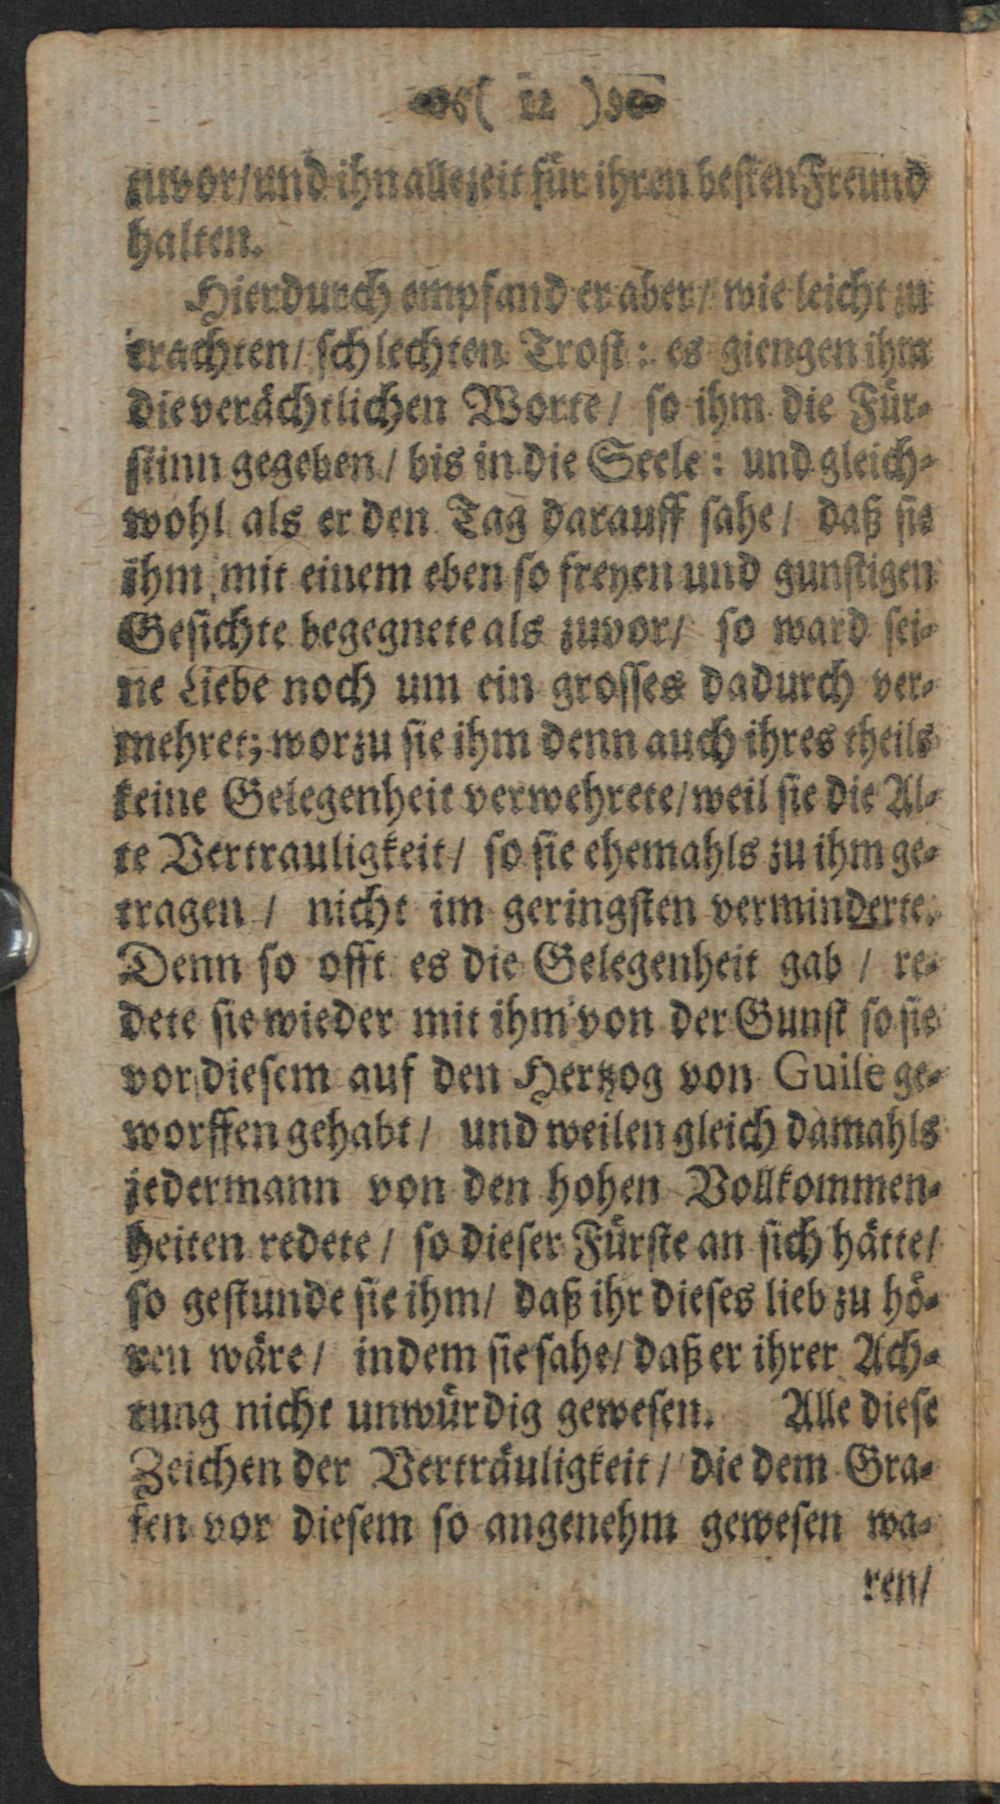 ( 12 )
zuvor/ und ihn allezeit für ihren besten Freund
halten.
Hierdurch empfand er aber/ wie leicht zu
erachten/ schlechten Trost: es giengen ihm
die verächtlichen Worte/ so ihm die Für-
stinn gegeben/ bis in die Seele: und gleich-
wohl als er den Tag darauff sahe/ daß sie
ihm mit einem eben so freyen und gunstigen
Gesichte begegnete als zuvor/ so ward sei-
ne Liebe noch um ein grosses dadurch ver-
mehret; worzu sie ihm denn auch ihres theils
keine Gelegenheit verwehrete/ weil sie die Al-
te Vertrauligkeit/ so sie ehemahls zu ihm ge-
tragen/ nicht im geringsten verminderte.
Denn so offt es die Gelegenheit gab/ re-
dete sie wieder mit ihm von der Gunst so sie
vor diesem auf den Hertzog von Guise ge-
worffen gehabt/ und weilen gleich damahls
jedermann von den hohen Vollkommen-
heiten redete/ so dieser Fürste an sich hätte/
so gestunde sie ihm/ daß ihr dieses lieb zu hö-
ren wäre/ indem sie sahe/ daß er ihrer Ach-
tung nicht unwürdig gewesen. Alle diese
Zeichen der Verträuligkeit/ die dem Gra-
fen vor diesem so angenehm gewesen wa-
ren/